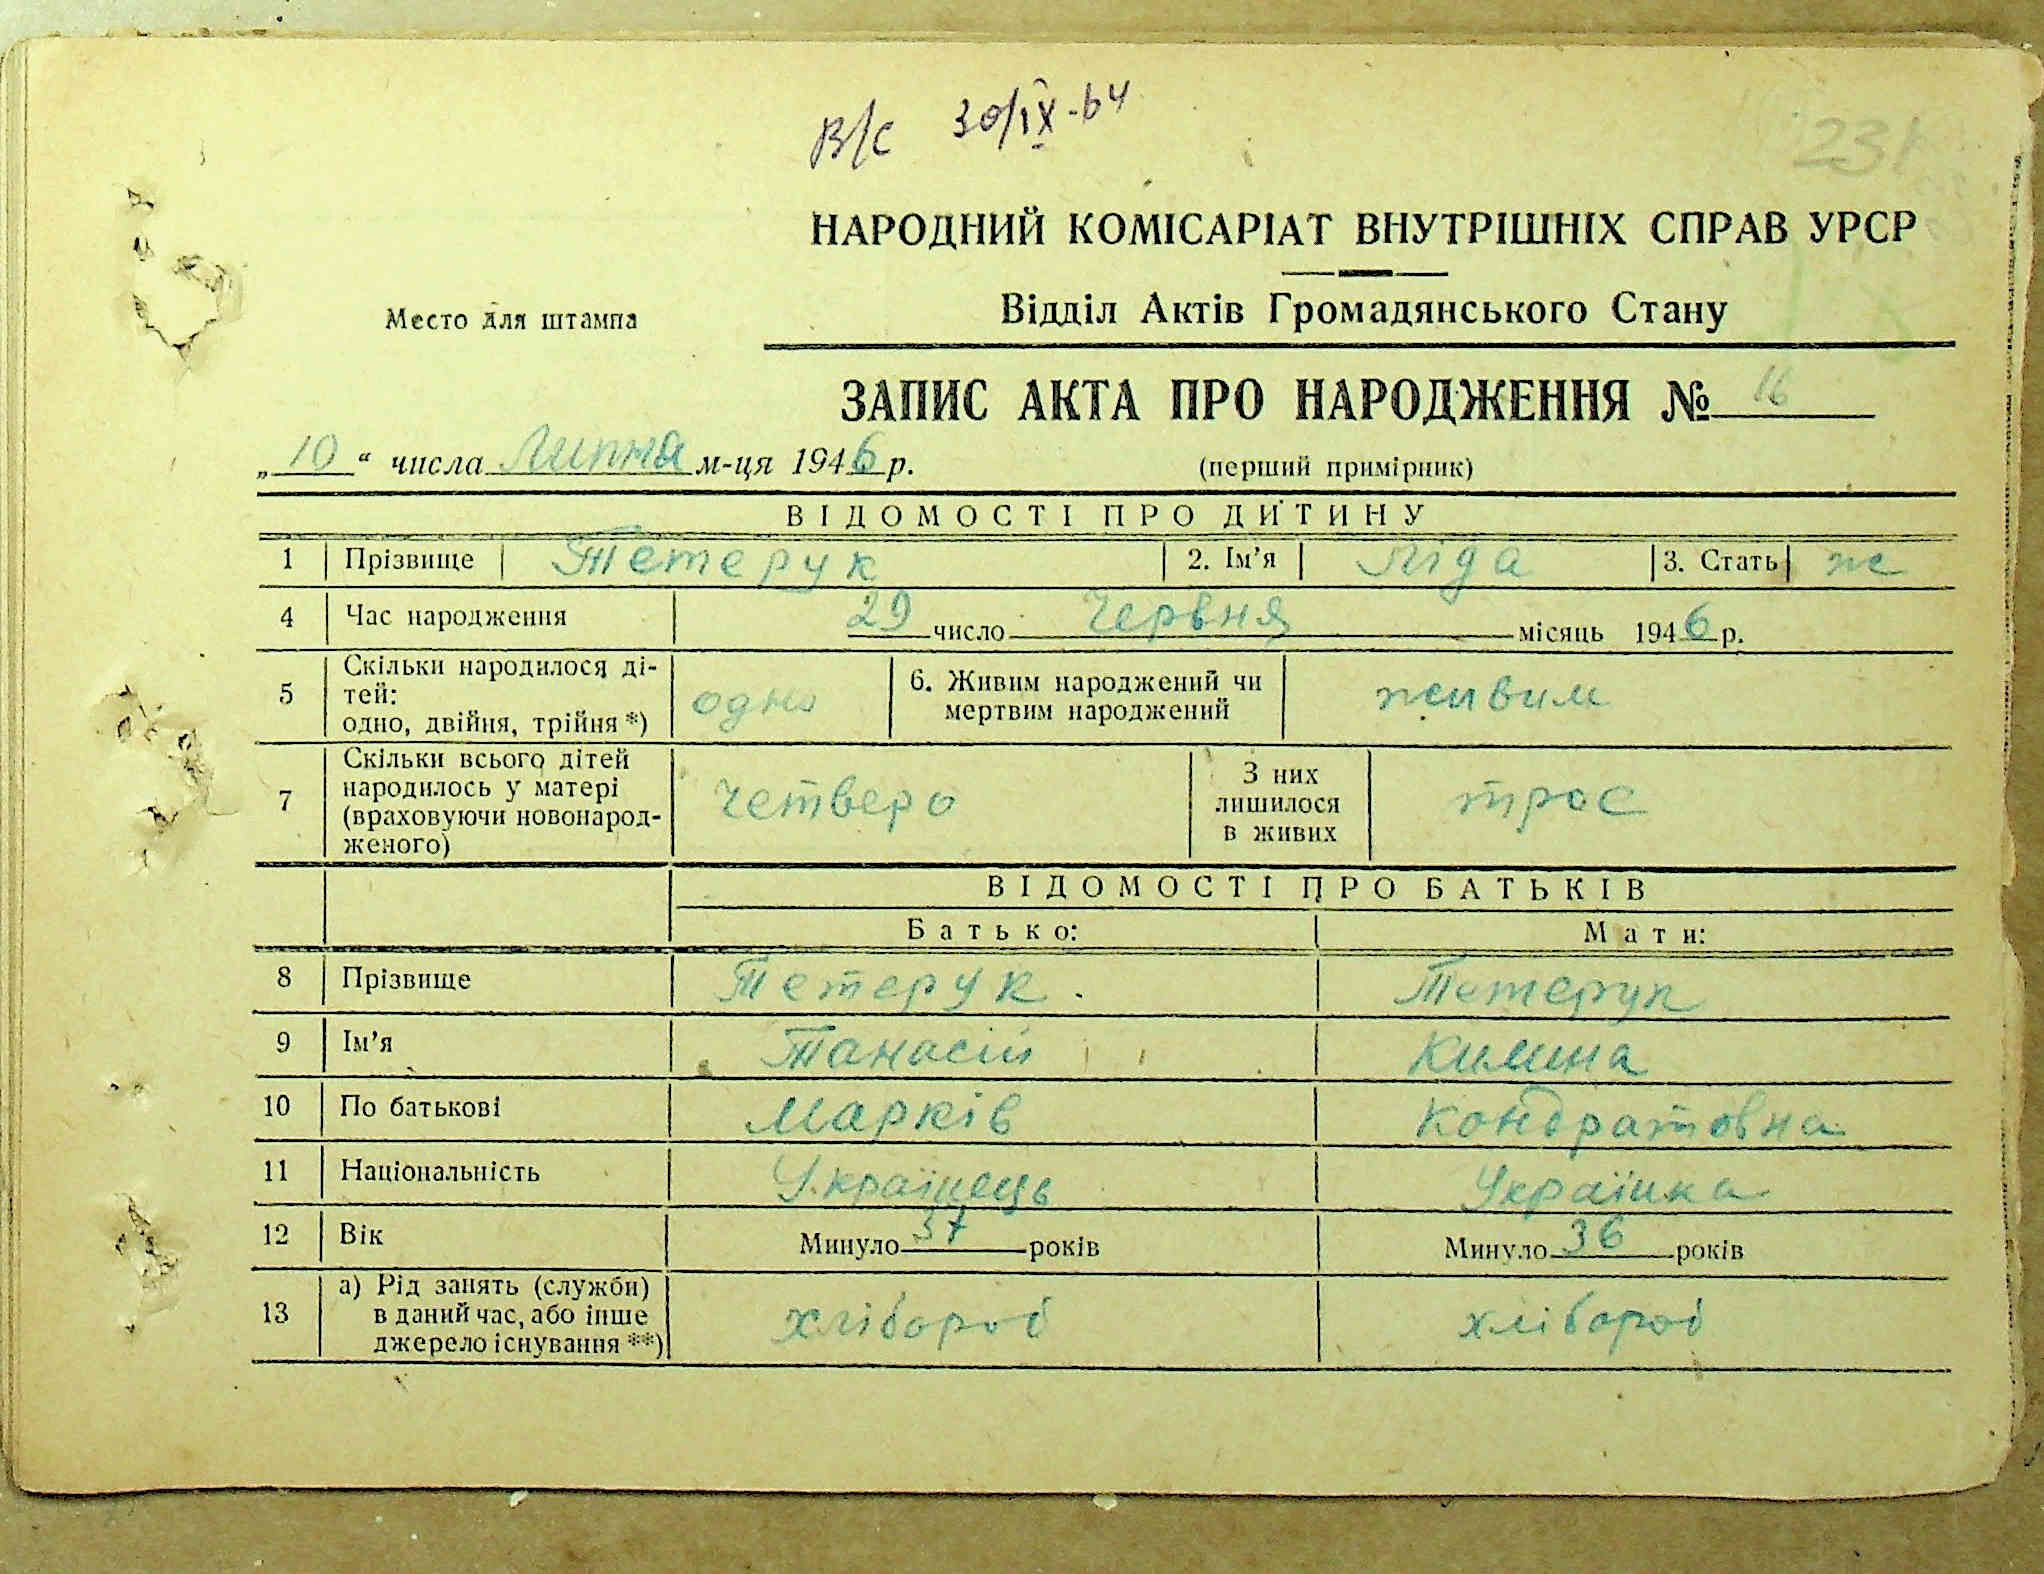 В/С 30/IX-64
231
НАРОДНИЙ КОМІСАРІАТ ВНУТРІШНІХ СПРАВ УРСР
Место для штампа
Відділ Актів Громадянського Стану
ЗАПИС АКТА ПРО НАРОДЖЕННЯ № 16
„10“ числа Липня м-ця 1946 р. (перший примірник)
ВІДОМОСТІ ПРО ДИТИНУ
1 Прізвище Тетерук 2. Ім’я Ліда 3. Стать ж
4 Час народження 29 число Червня місяць 1946 р.
5 Скільки народилося ді-
тей:
одно, двійня, трійня *) одно 6. Живим народжений чи
мертвим народжений живим
7 Скільки всього дітей
народилось у матері
(враховуючи новонарод-
женого) четверо З них
лишилося
в живих троє
ВІДОМОСТІ ПРО БАТЬКІВ
Батько: Мати:
8 Прізвище Тетерук. Тетерук
9 Ім’я Танасій Килина
10 По батькові Марків Кондратовна
11 Національність Українець Українка
12 Вік Минуло 37 років Минуло 36 років
13 а) Рід занять (служби)
в даний час, або інше
джерело існування **) хлібороб хлібороб